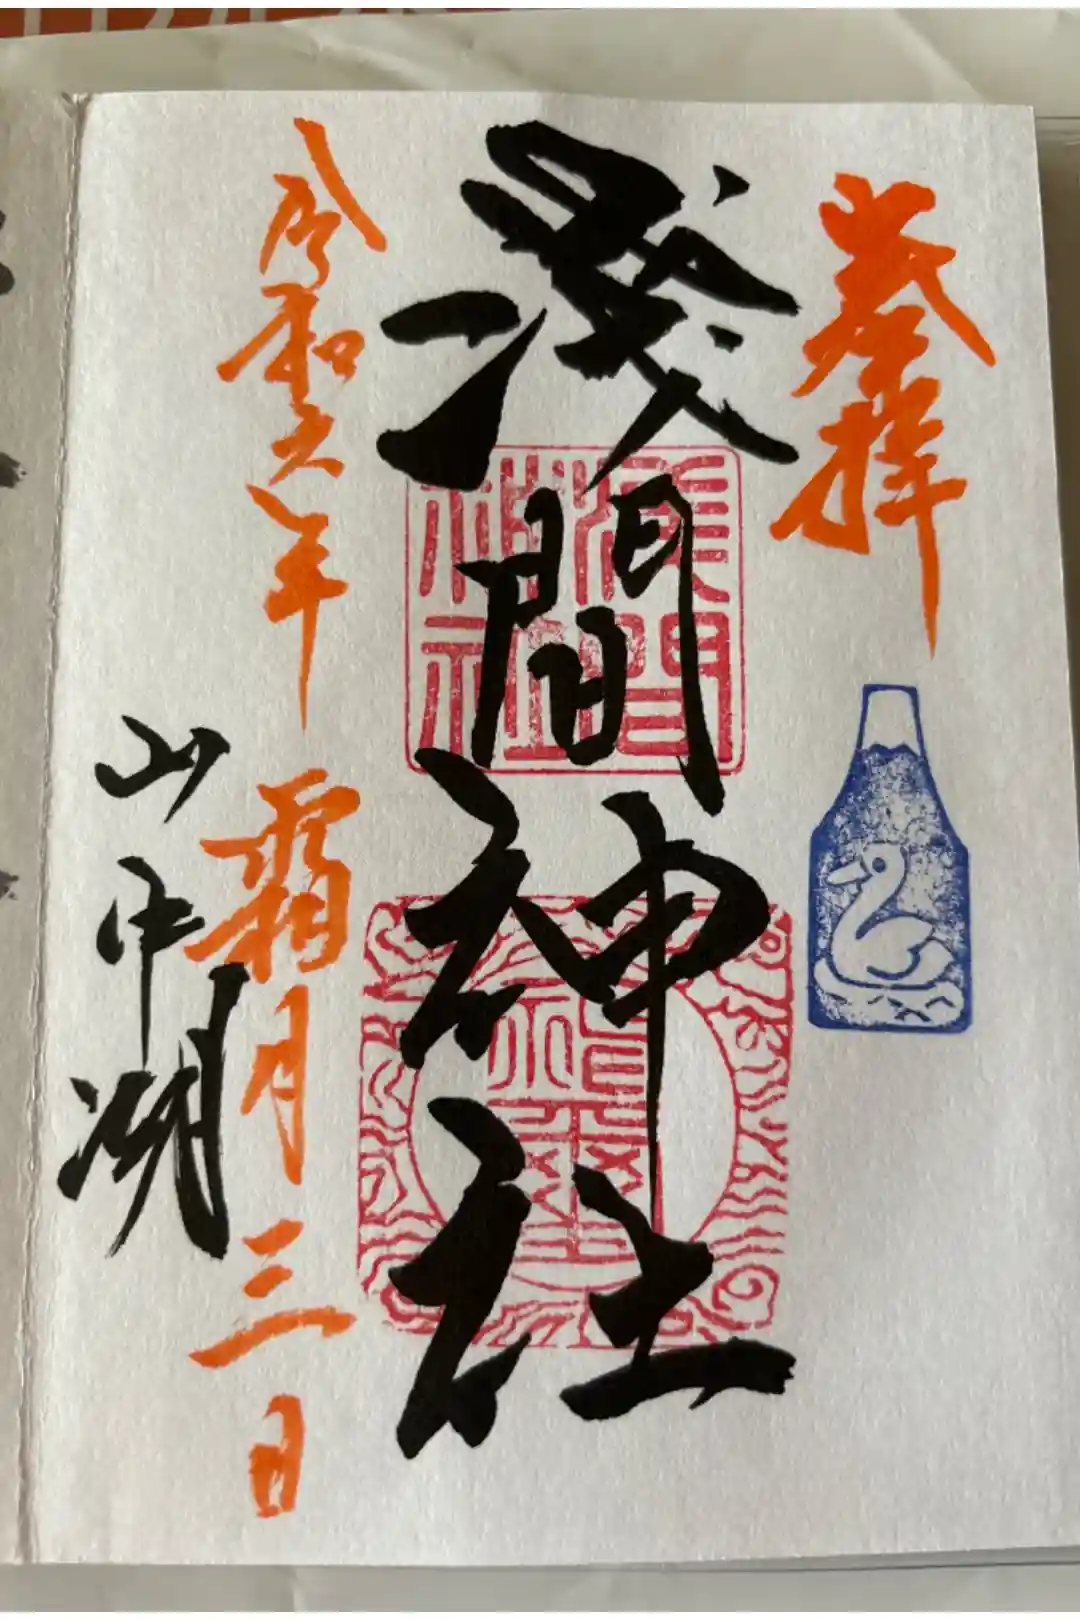 奉拝
浅間神社
浅間神社
令和六年霜月三日
山中湖